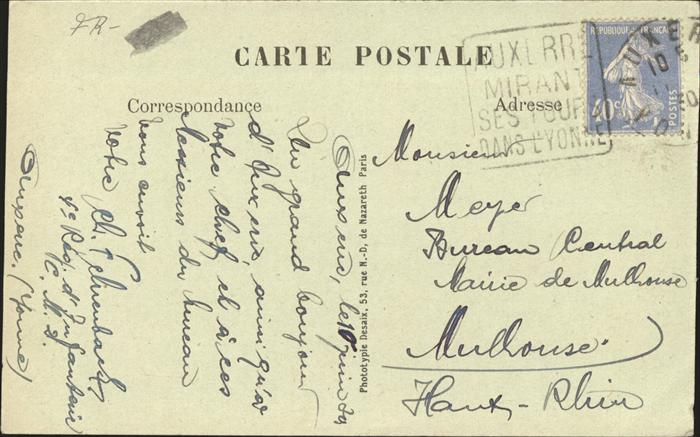 FR-
CARTE POSTALE
Correspondance
Adresse
AUXERRE
MIRANT
SES TOURS
DANS L'YONNE
REPUBLIQUE FRANCAISE
40c
POSTES
AUXERRE
10
Auxerre, le 10 juin
Un grand bonjour
d'Auxerre, ainsi qu'à
votre chef et à ces
Messieurs du bureau
vous envoit
votre Ch.
4e Rég. d'Infanterie
C. M. 2.
Auxerre. (Yonne)
Phototypie Desaix, 53, rue N.-D. de Nazareth Paris
Monsieur
Meyer
Bureau Central
Mairie de Mulhouse
Mulhouse
Haut-Rhin